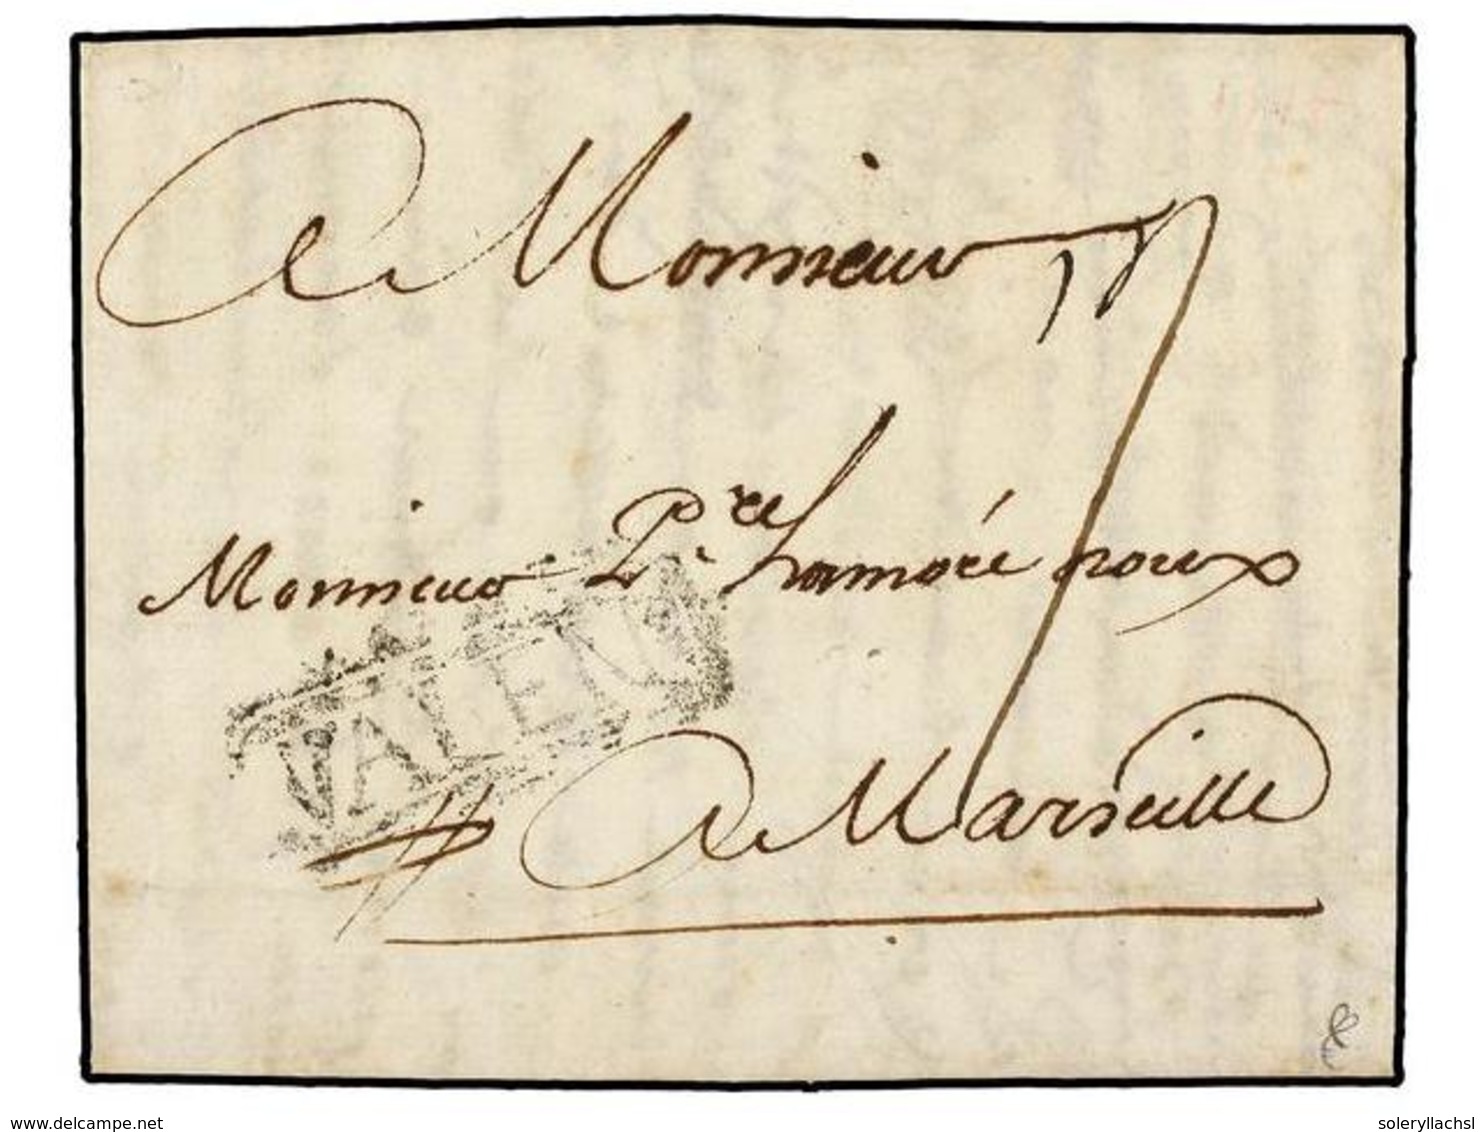 A Monsieur
Monsieur P.re honoré roux
VALEN
A Marseille
delcampe.net
soleryllachsl